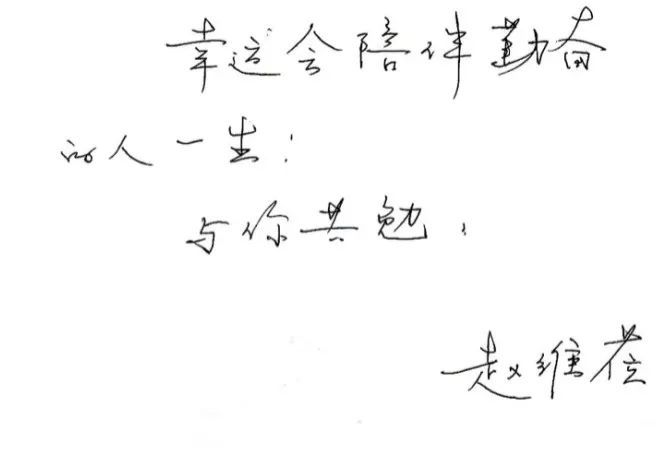 幸运会陪伴勤奋
的人一生！
与你共勉！
赵维莅